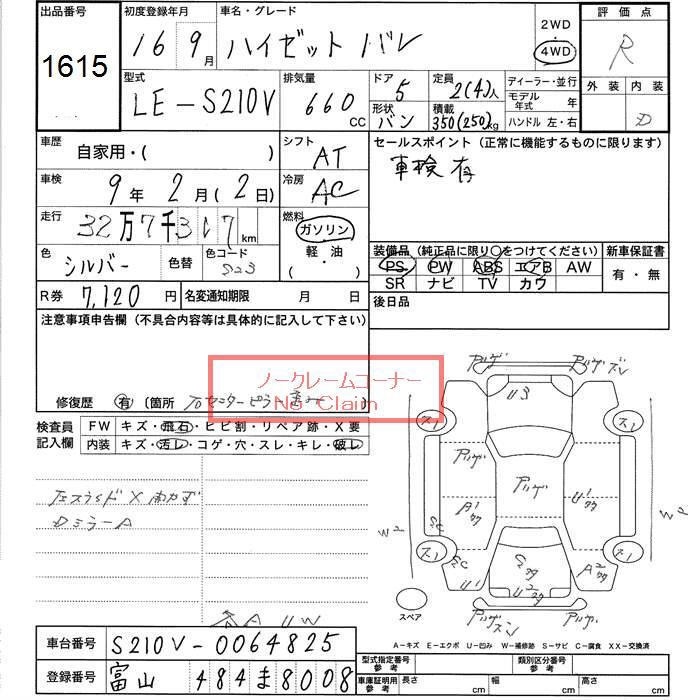 出品番号
1615
初度登録年月
16 9月
車名・グレード
ハイゼット バン
2WD
4WD
評価点
R
外装 内装
D
型式
LE-S210V
排気量
660 CC
ドア
5
形状
バン
定員
2(4)人
積載
350(250)kg
ディーラー・並行
モデル年式 年
ハンドル 左・右
車歴
自家用・( )
シフト
AT
車検
9年 2月(2日)
冷房
AC
走行
32万7千317km
燃料
ガソリン
軽・油
( )
色
シルバー
色替
色コード
S23
セールスポイント (正常に機能するものに限ります)
車検有
装備品 (純正品に限り○をつけてください)
PS PW ABS エアB AW
SR ナビ TV カワ
新車保証書
有・無
R券 7,120円
名変通知期限 月 日
後日品
注意事項申告欄 (不具合内容等は具体的に記入して下さい)
ノークレームコーナー
No Claim
修復歴 有 〔箇所
検査員記入欄
FW キズ・飛石・ヒビ割・リペア跡・X要
内装 キズ・汚レ・コゲ・穴・スレ・キレ・破レ
DミラーA
アリゲ
アリゲ
U3
スレ
スレ
アリゲ
アリゲ
A1
U1
SC
スレ
スレ
SC
U1
A2
アリゲ
スペア
A−キズ E−エクボ U−凹み W−補修跡 S−サビ C−腐食 XX−交換済
車台番号
S210V-0064825
登録番号
富山 484ま8008
型式指定番号 参考
類別区分番号 参考
車庫証明用 参考
長さ cm
幅 cm
高さ cm